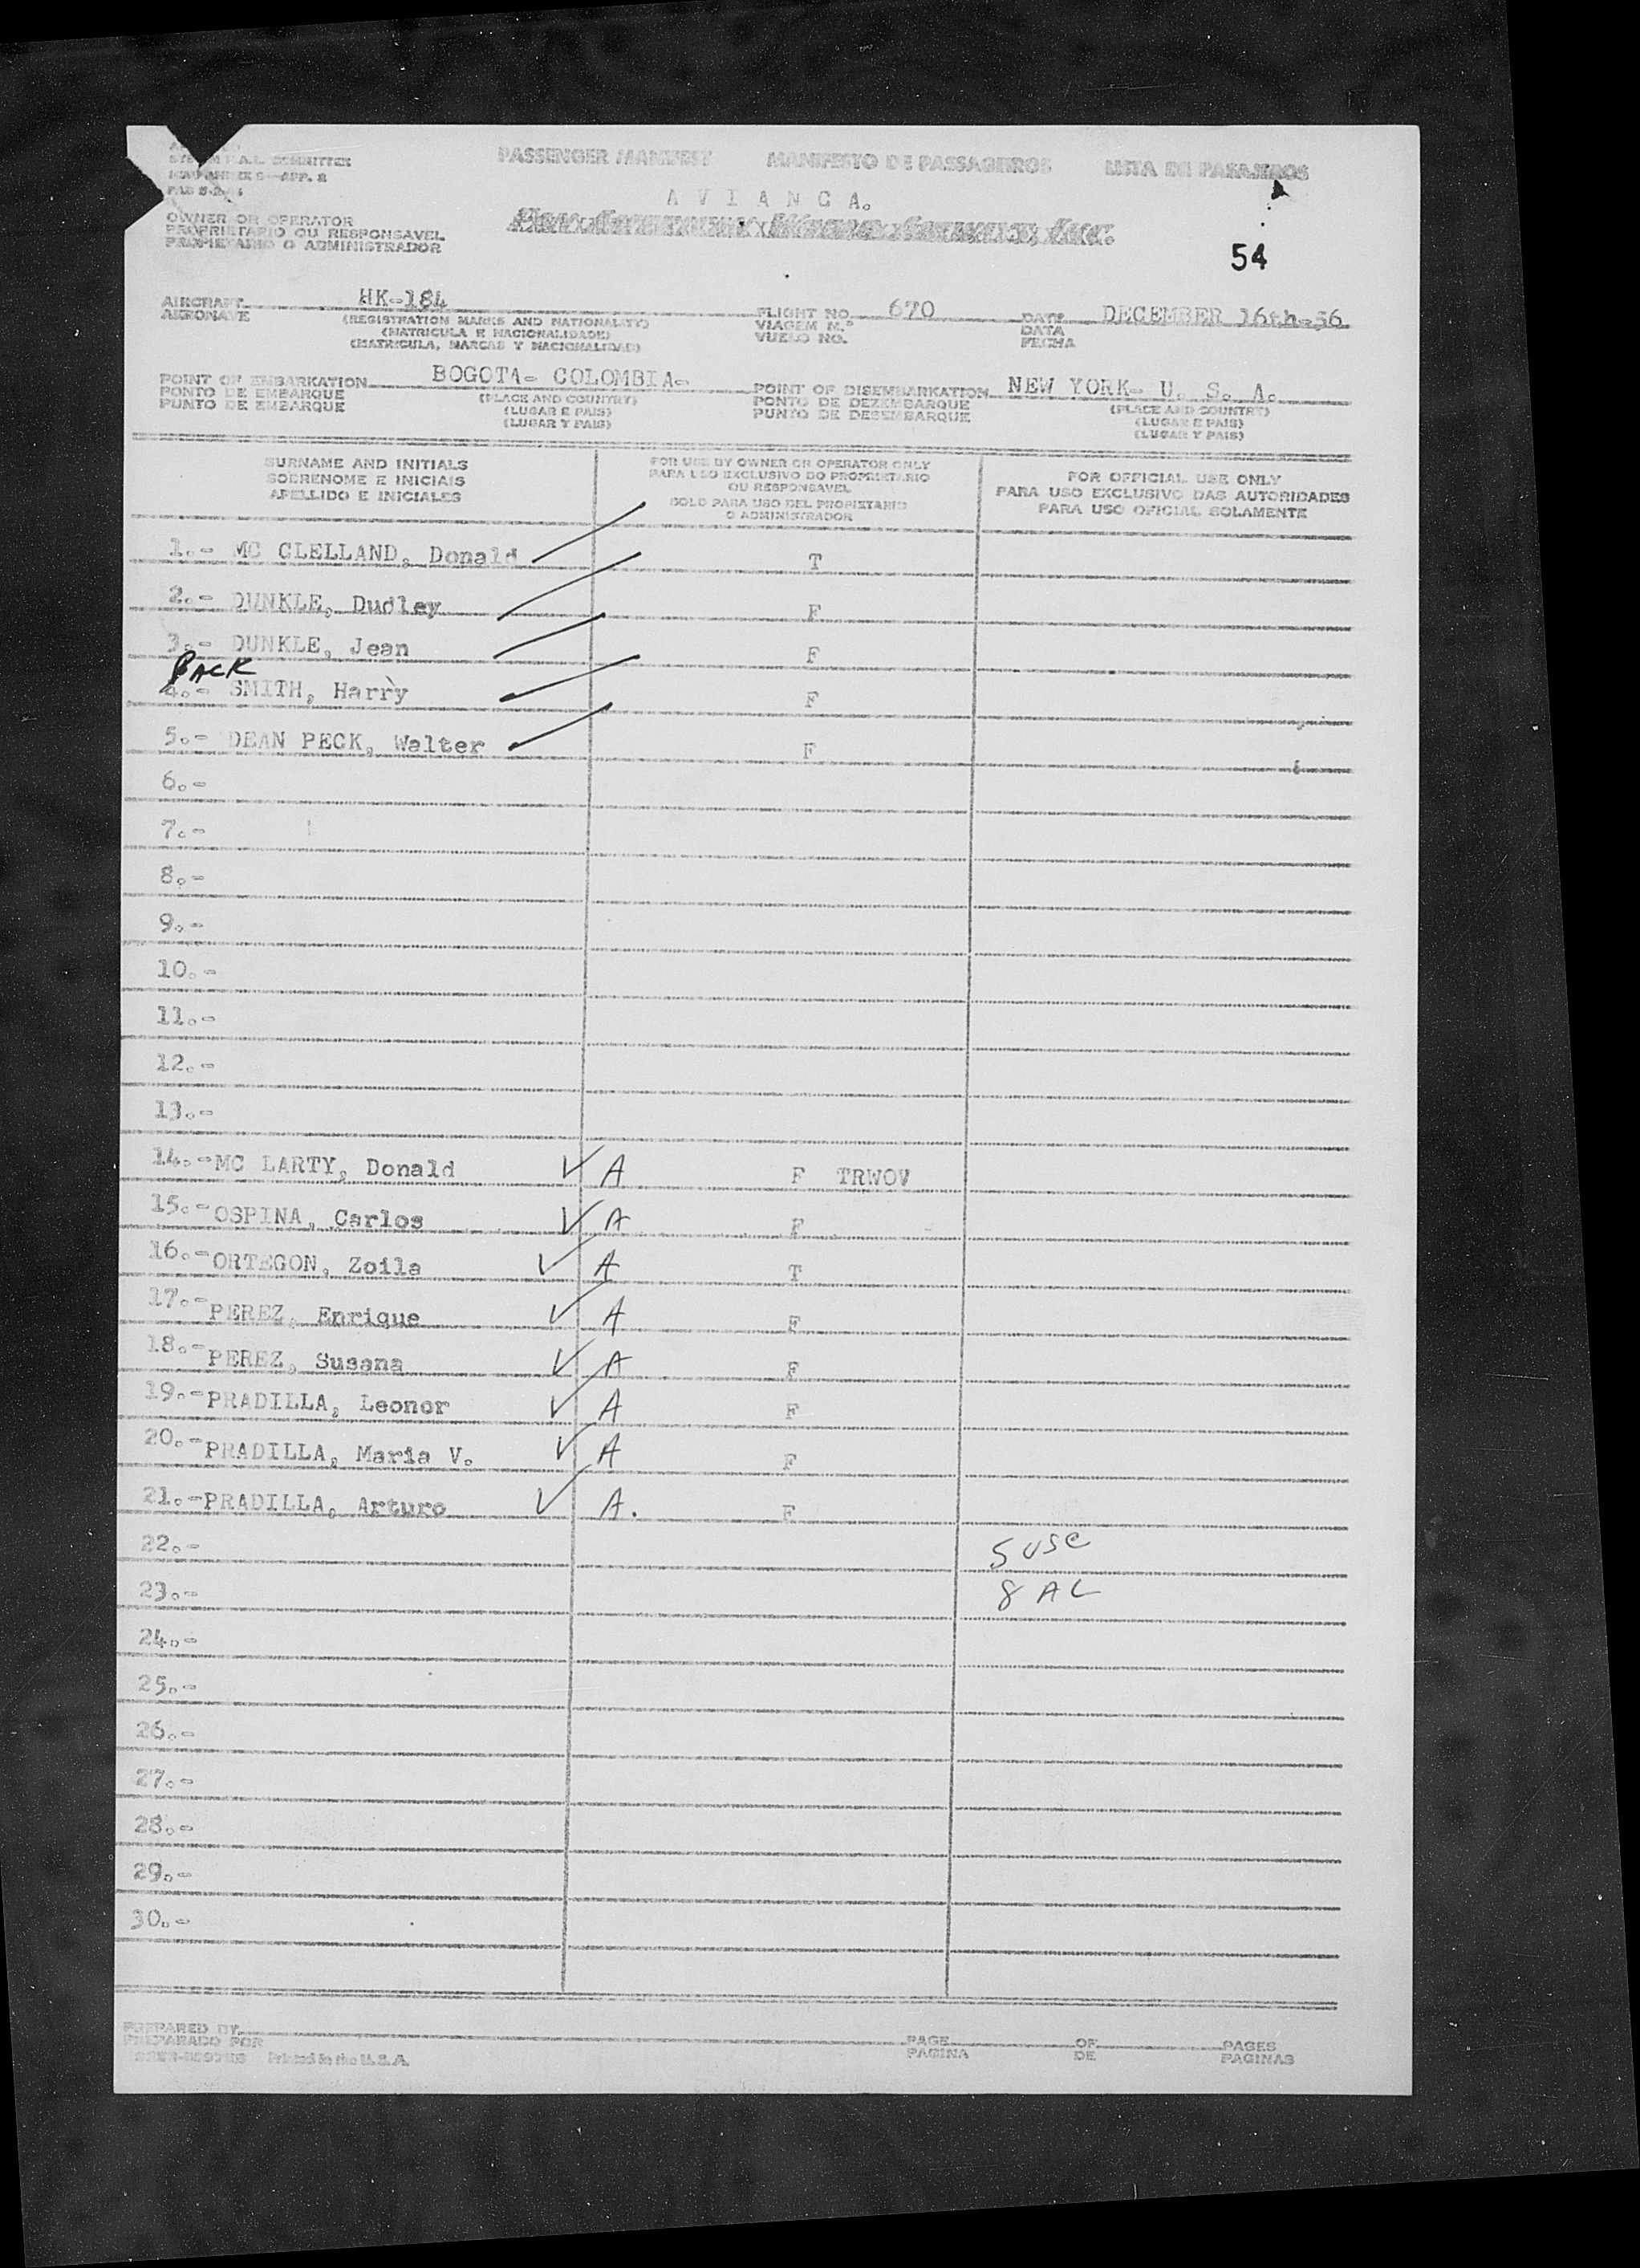 PASSENGER MANIFEST MANIFESTO DE PASSAGEIROS LISTA DE PASAJEROS
COMMITTEE
APP. 2
A V I A N C A.
OWNER OR OPERATOR
PROPRIETARIO OU RESPONSAVEL
PROPIETARIO O ADMINISTRADOR
54
AIRCRAFT HK-184 FLIGHT NO. 670 DATE DECEMBER 16th-56
AERONAVE (REGISTRATION MARKS AND NATIONALITY) VIAGEM N.º DATA
(MATRICULA E NACIONALIDADE) VUELO NO. FECHA
(MATRICULA, MARCAS Y NACIONALIDAD)
POINT OF EMBARKATION BOGOTA- COLOMBIA- POINT OF DISEMBARKATION NEW YORK- U. S. A.
PONTO DE EMBARQUE (PLACE AND COUNTRY) PONTO DE DEZEMBARQUE (PLACE AND COUNTRY)
PUNTO DE EMBARQUE (LUGAR E PAIS) PUNTO DE DESEMBARQUE (LUGAR E PAIS)
(LUGAR Y PAIS) (LUGAR Y PAIS)
SURNAME AND INITIALS
SOBRENOME E INICIAIS
APELLIDO E INICIALES
FOR USE BY OWNER OR OPERATOR ONLY
PARA USO EXCLUSIVO DO PROPRIETARIO
OU RESPONSAVEL
SOLO PARA USO DEL PROPIETARIO
O ADMINISTRADOR
FOR OFFICIAL USE ONLY
PARA USO EXCLUSIVO DAS AUTORIDADES
PARA USO OFICIAL SOLAMENTE
1.- MC CLELLAND, Donald T
2.- DUNKLE, Dudley F
3.- DUNKLE, Jean F
4.- SMITH, Harry F
5.- DEAN PECK, Walter F
6.-
7.-
8.-
9.-
10.-
11.-
12.-
13.-
14.- MC LARTY, Donald A F TRWOV
15.- OSPINA, Carlos A F
16.- ORTEGON, Zoila A T
17.- PEREZ, Enrique A F
18.- PEREZ, Susana A F
19.- PRADILLA, Leonor A F
20.- PRADILLA, Maria V. A F
21.- PRADILLA, Arturo A. F
22.- 5 USC
23.- 8 AL
24.-
25.-
26.-
27.-
28.-
29.-
30.-
PREPARED BY PAGE OF PAGES
PREPARADO POR PAGINA DE PAGINAS
Printed in the U.S.A.